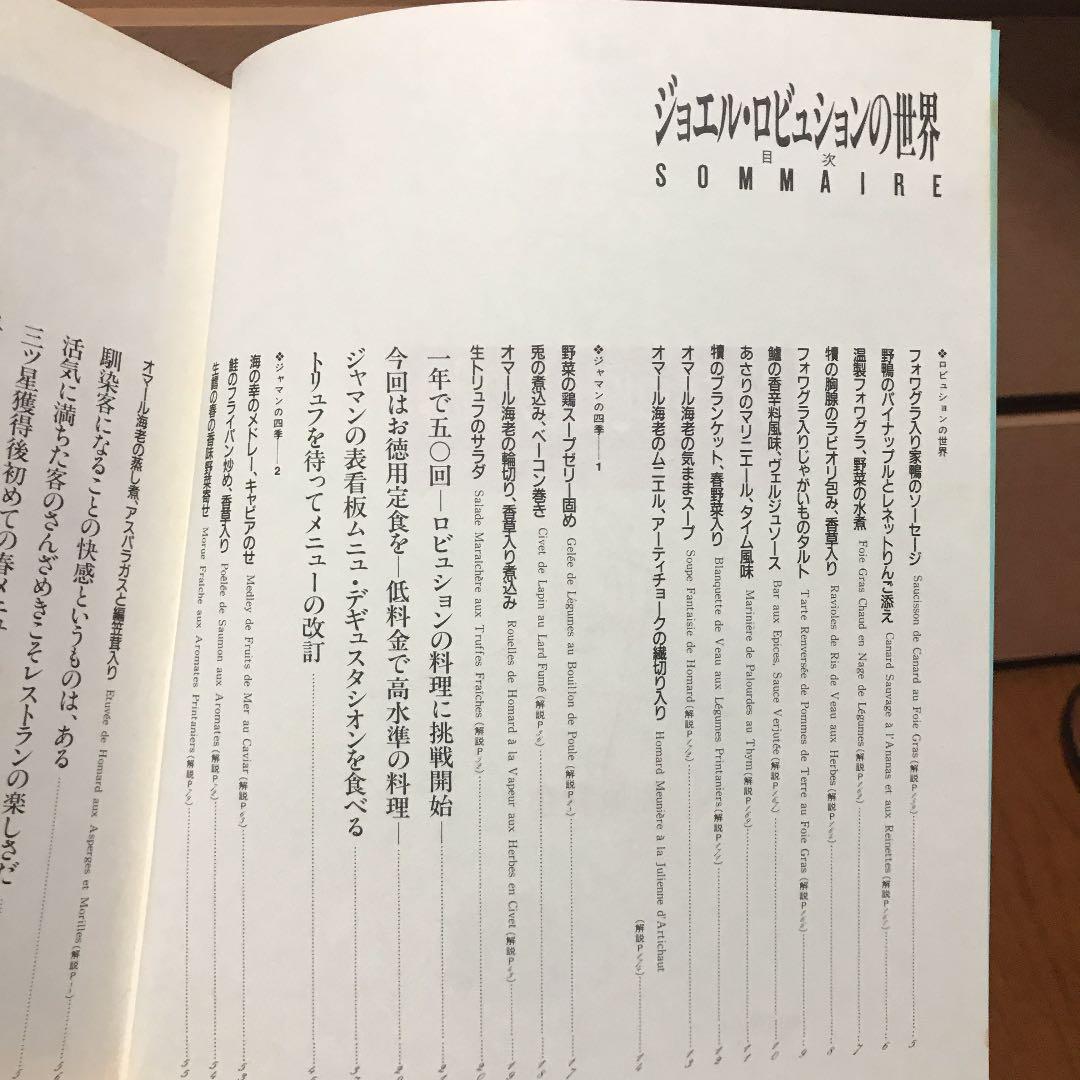 ジョエル・ロビュションの世界
目次
SOMMAIRE
❖ロビュションの世界
フォワグラ入り家鴨のソーセージ Saucisson de Canard au Foie Gras (解説P
5
野鴨のパイナップルとレネットりんご添え Canard Sauvage à l'Ananas et aux Reinettes (解説P
6
温製フォワグラ、野菜の水煮 Foie Gras Chaud en Nage de Légumes (解説P
7
犢の胸腺のラビオリ包み、香草入り Ravioles de Ris de Veau aux Herbes (解説P
8
フォワグラ入りじゃがいものタルト Tarte Renversée de Pommes de Terre au Foie Gras (解説P
9
鱸の香辛料風味、ヴェルジュソース Bar aux Epices, Sauce Verjutée (解説P
10
あさりのマリニエール、タイム風味 Marinière de Palourdes au Thym (解説P
11
犢のブランケット、春野菜入り Blanquette de Veau aux Légumes Printaniers (解説P
12
オマール海老の気ままスープ Soupe Fantaisie de Homard (解説P
13
オマール海老のムニエル、アーティチョークの繊切り入り Homard Meunière à la Julienne d'Artichaut
(解説P
14
❖ジャマンの四季——1
野菜の鶏スープゼリー固め Gelée de Légumes au Bouillon de Poule (解説P
17
兎の煮込み、ベーコン巻き Civet de Lapin au Lard Fumé (解説P
18
オマール海老の輪切り、香草入り煮込み Rouelles de Homard à la Vapeur aux Herbes en Civet (解説P
19
生トリュフのサラダ Salade Maraîchère aux Truffes Fraîches (解説P
20
一年で五〇回—ロビュションの料理に挑戦開始—
今回はお徳用定食を—低料金で高水準の料理—
ジャマンの表看板ムニュ・デギュスタシオンを食べる
トリュフを待ってメニューの改訂
❖ジャマンの四季——2
海の幸のメドレー、キャビアのせ Medley de Fruits de Mer au Caviar (解説P
53
鮭のフライパン炒め、香草入り Poêlée de Saumon aux Aromates (解説P
54
生鱈の春の香味野菜寄せ Morue Fraîche aux Aromates Printaniers (解説P
55
オマール海老の蒸し煮、アスパラガスと編笠茸入り Etuvée de Homard aux Asperges et Morilles (解説P
馴染客になることの快感というものは、ある
活気に満ちた客のさんざめきこそレストランの楽しさだ
三ツ星獲得後初めての春メニュ